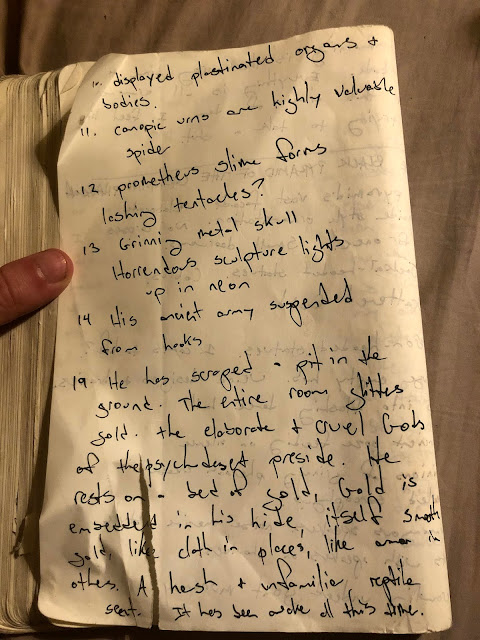 10. displayed plastinated organs +
bodies.
11. canopic urns are highly valuable
spider
12 prometheus slime forms
lashing tentacles?
13 Grinning metal skull
Horrendous sculpture lights
up in neon
14 His ancient army suspended
from hooks
19 He has scraped a pit in the
ground. The entire room glitters
gold. the elaborate + cruel Gods
of the psychdesert preside. He
rests on a bed of gold, Gold is
embedded in his hide itself smooth
gold, like cloth in places, like armor in
others. A harsh + unfamiliar reptile
scent. It has been awake all this time.